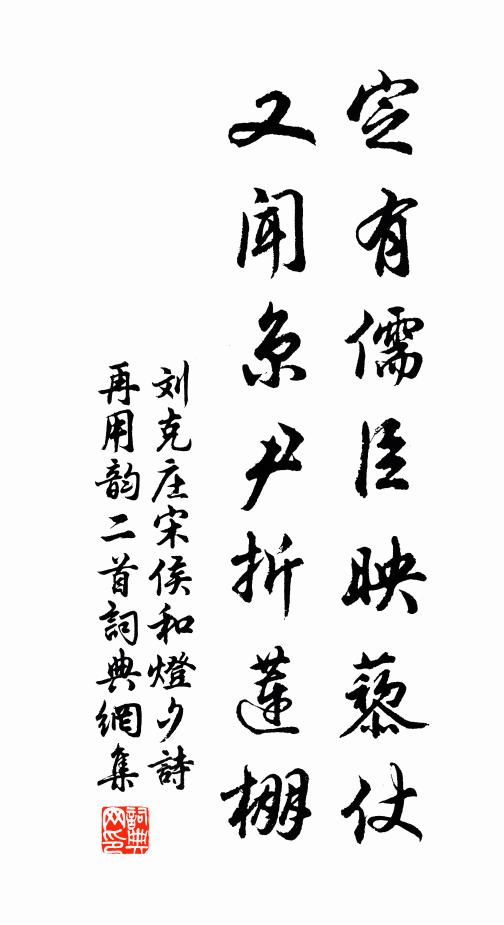 定有儒臣映藜仗
又闻京尹折莲棚
刘克庄宋侯和燈夕詩
再用韵二首詞典網集
詞典
网印